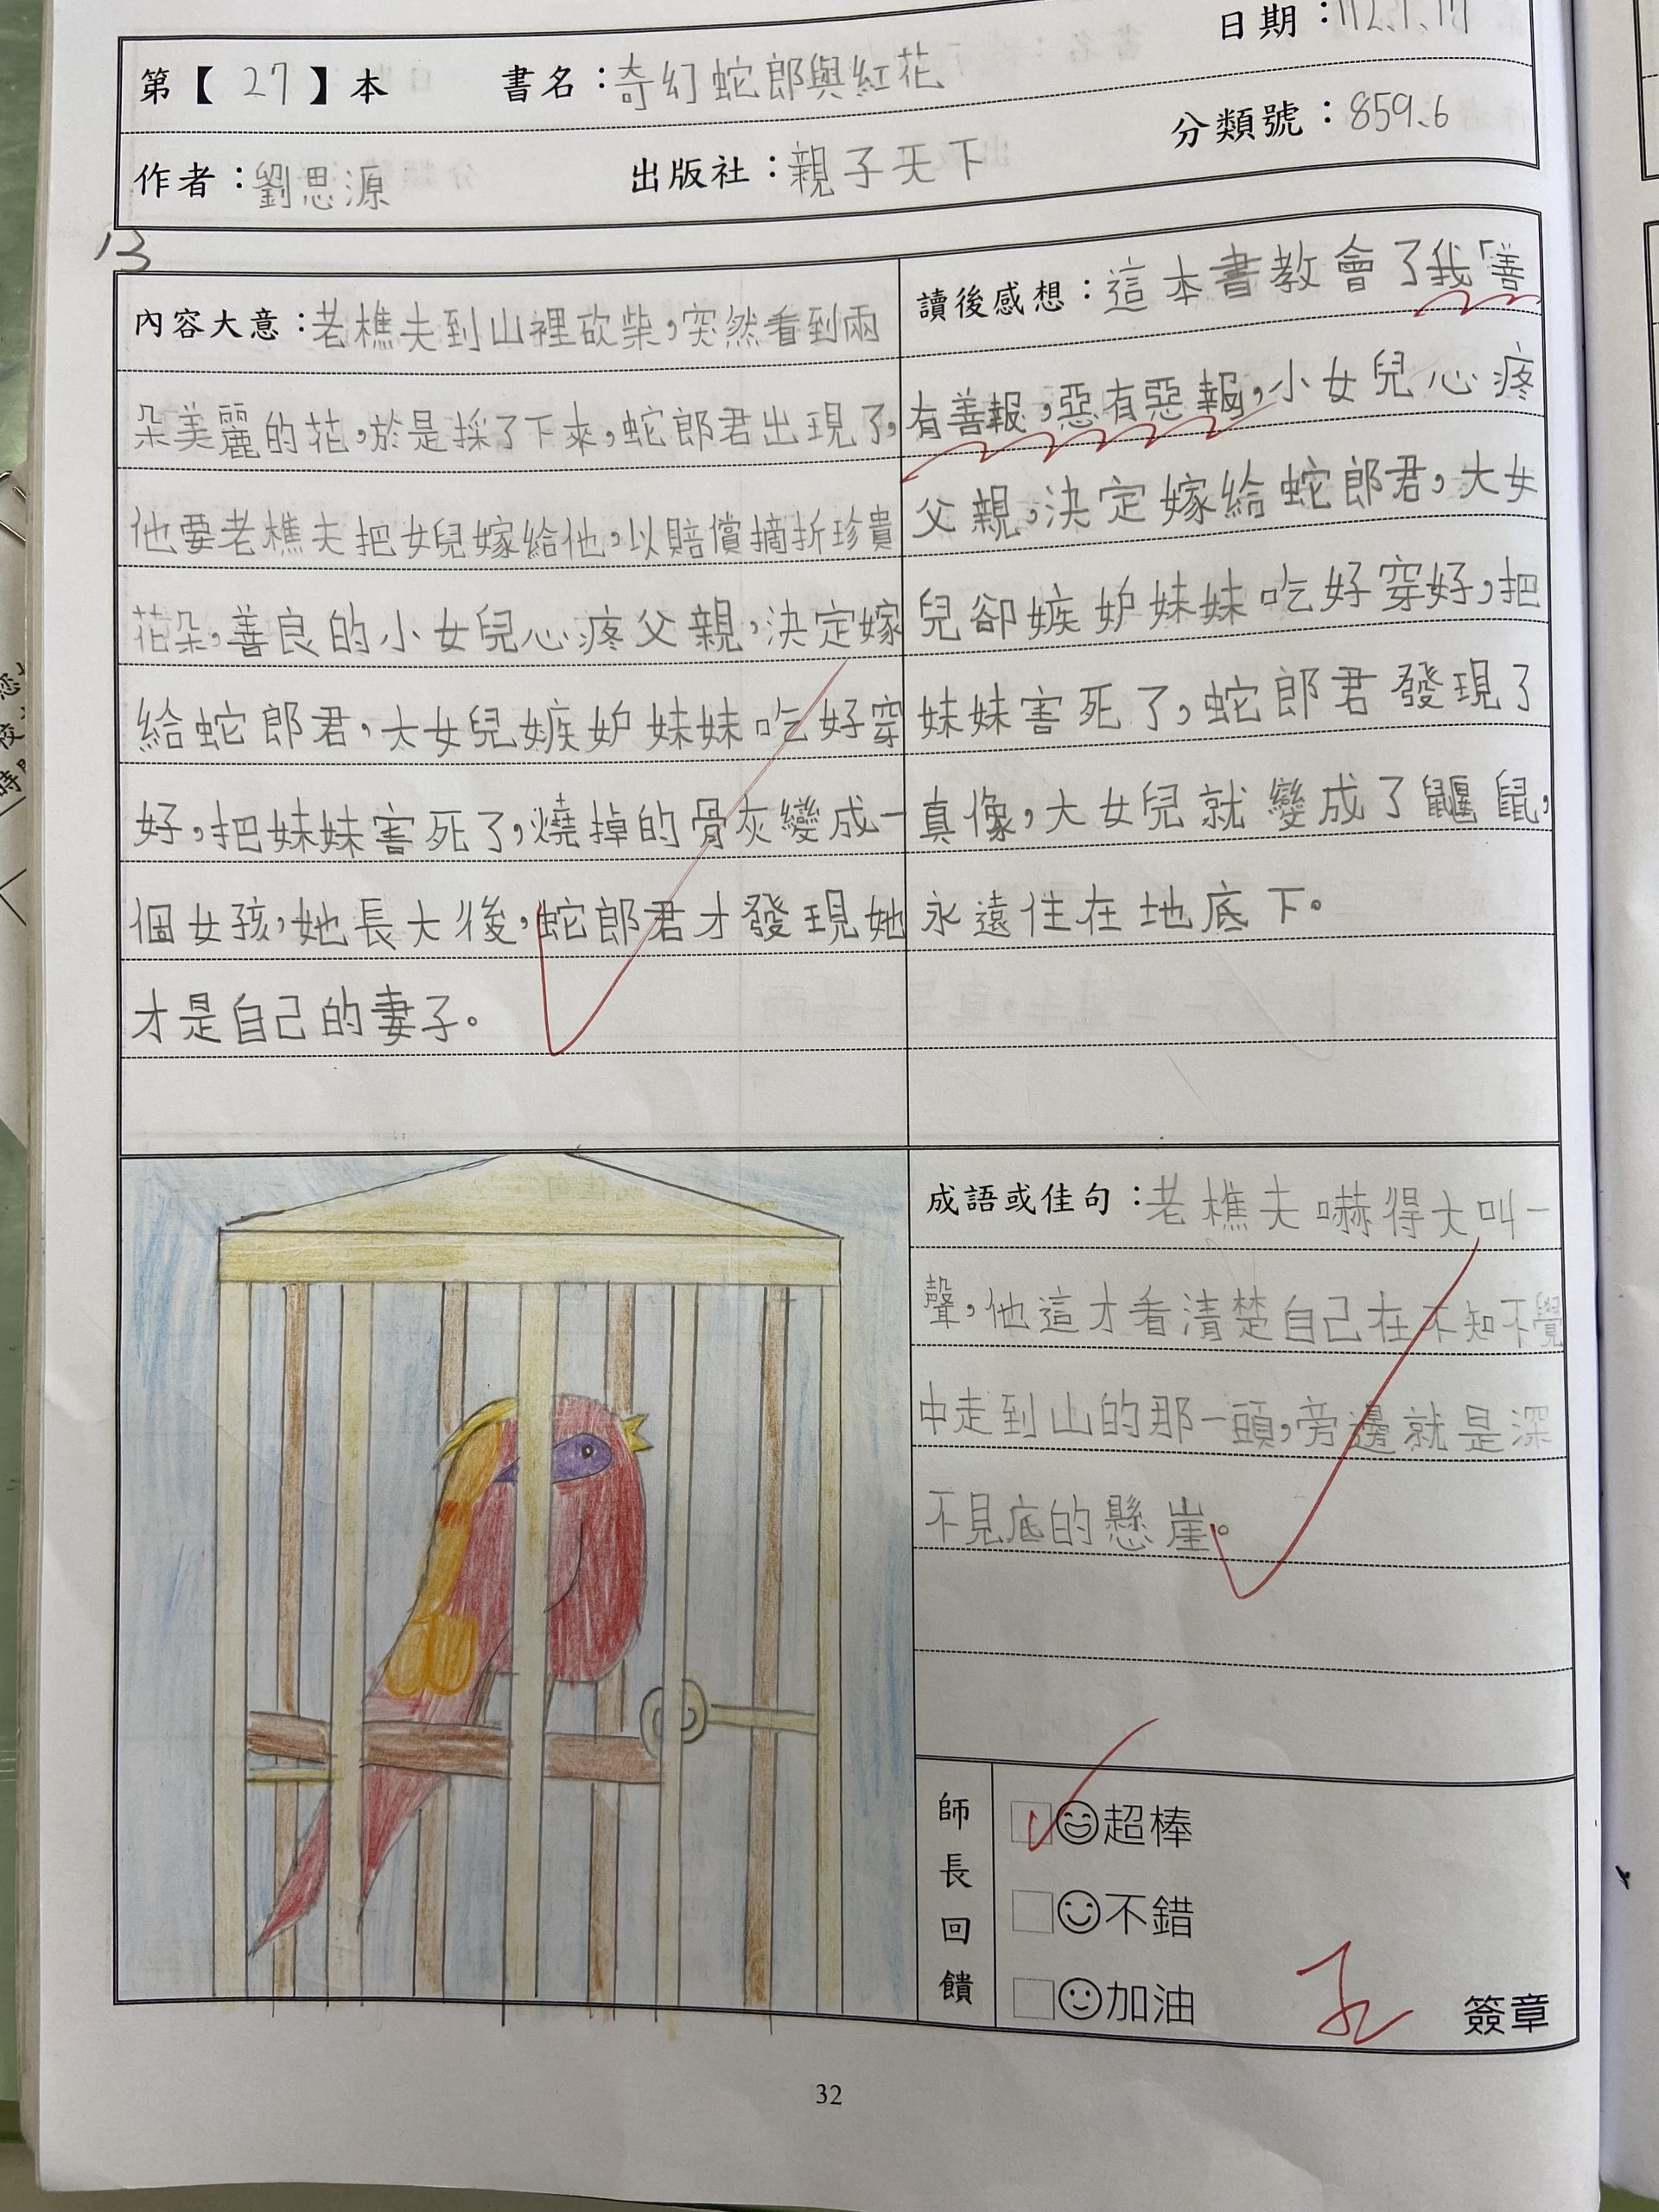 日期：112.1.17
第【 27 】本 書名：奇幻蛇郎與紅花
分類號：859.6
作者：劉思源 出版社：親子天下
13
內容大意：老樵夫到山裡砍柴，突然看到兩
朵美麗的花，於是採了下來，蛇郎君出現了，
他要老樵夫把女兒嫁給他，以賠償摘折珍貴
花朵，善良的小女兒心疼父親，決定嫁
給蛇郎君，大女兒嫉妒妹妹吃好穿
好，把妹妹害死了，燒掉的骨灰變成一
個女孩，她長大後，蛇郎君才發現她
才是自己的妻子。
讀後感想：這本書教會了我「善
有善報，惡有惡報，小女兒心疼
父親，決定嫁給蛇郎君，大女
兒卻嫉妒妹妹吃好穿好，把
妹妹害死了，蛇郎君發現了
真像，大女兒就變成了鼴鼠，
永遠住在地底下。
成語或佳句：老樵夫嚇得大叫一
聲，他這才看清楚自己在不知不覺
中走到山的那一頭，旁邊就是深
不見底的懸崖。
師長回饋
超棒
不錯
加油
簽章
32